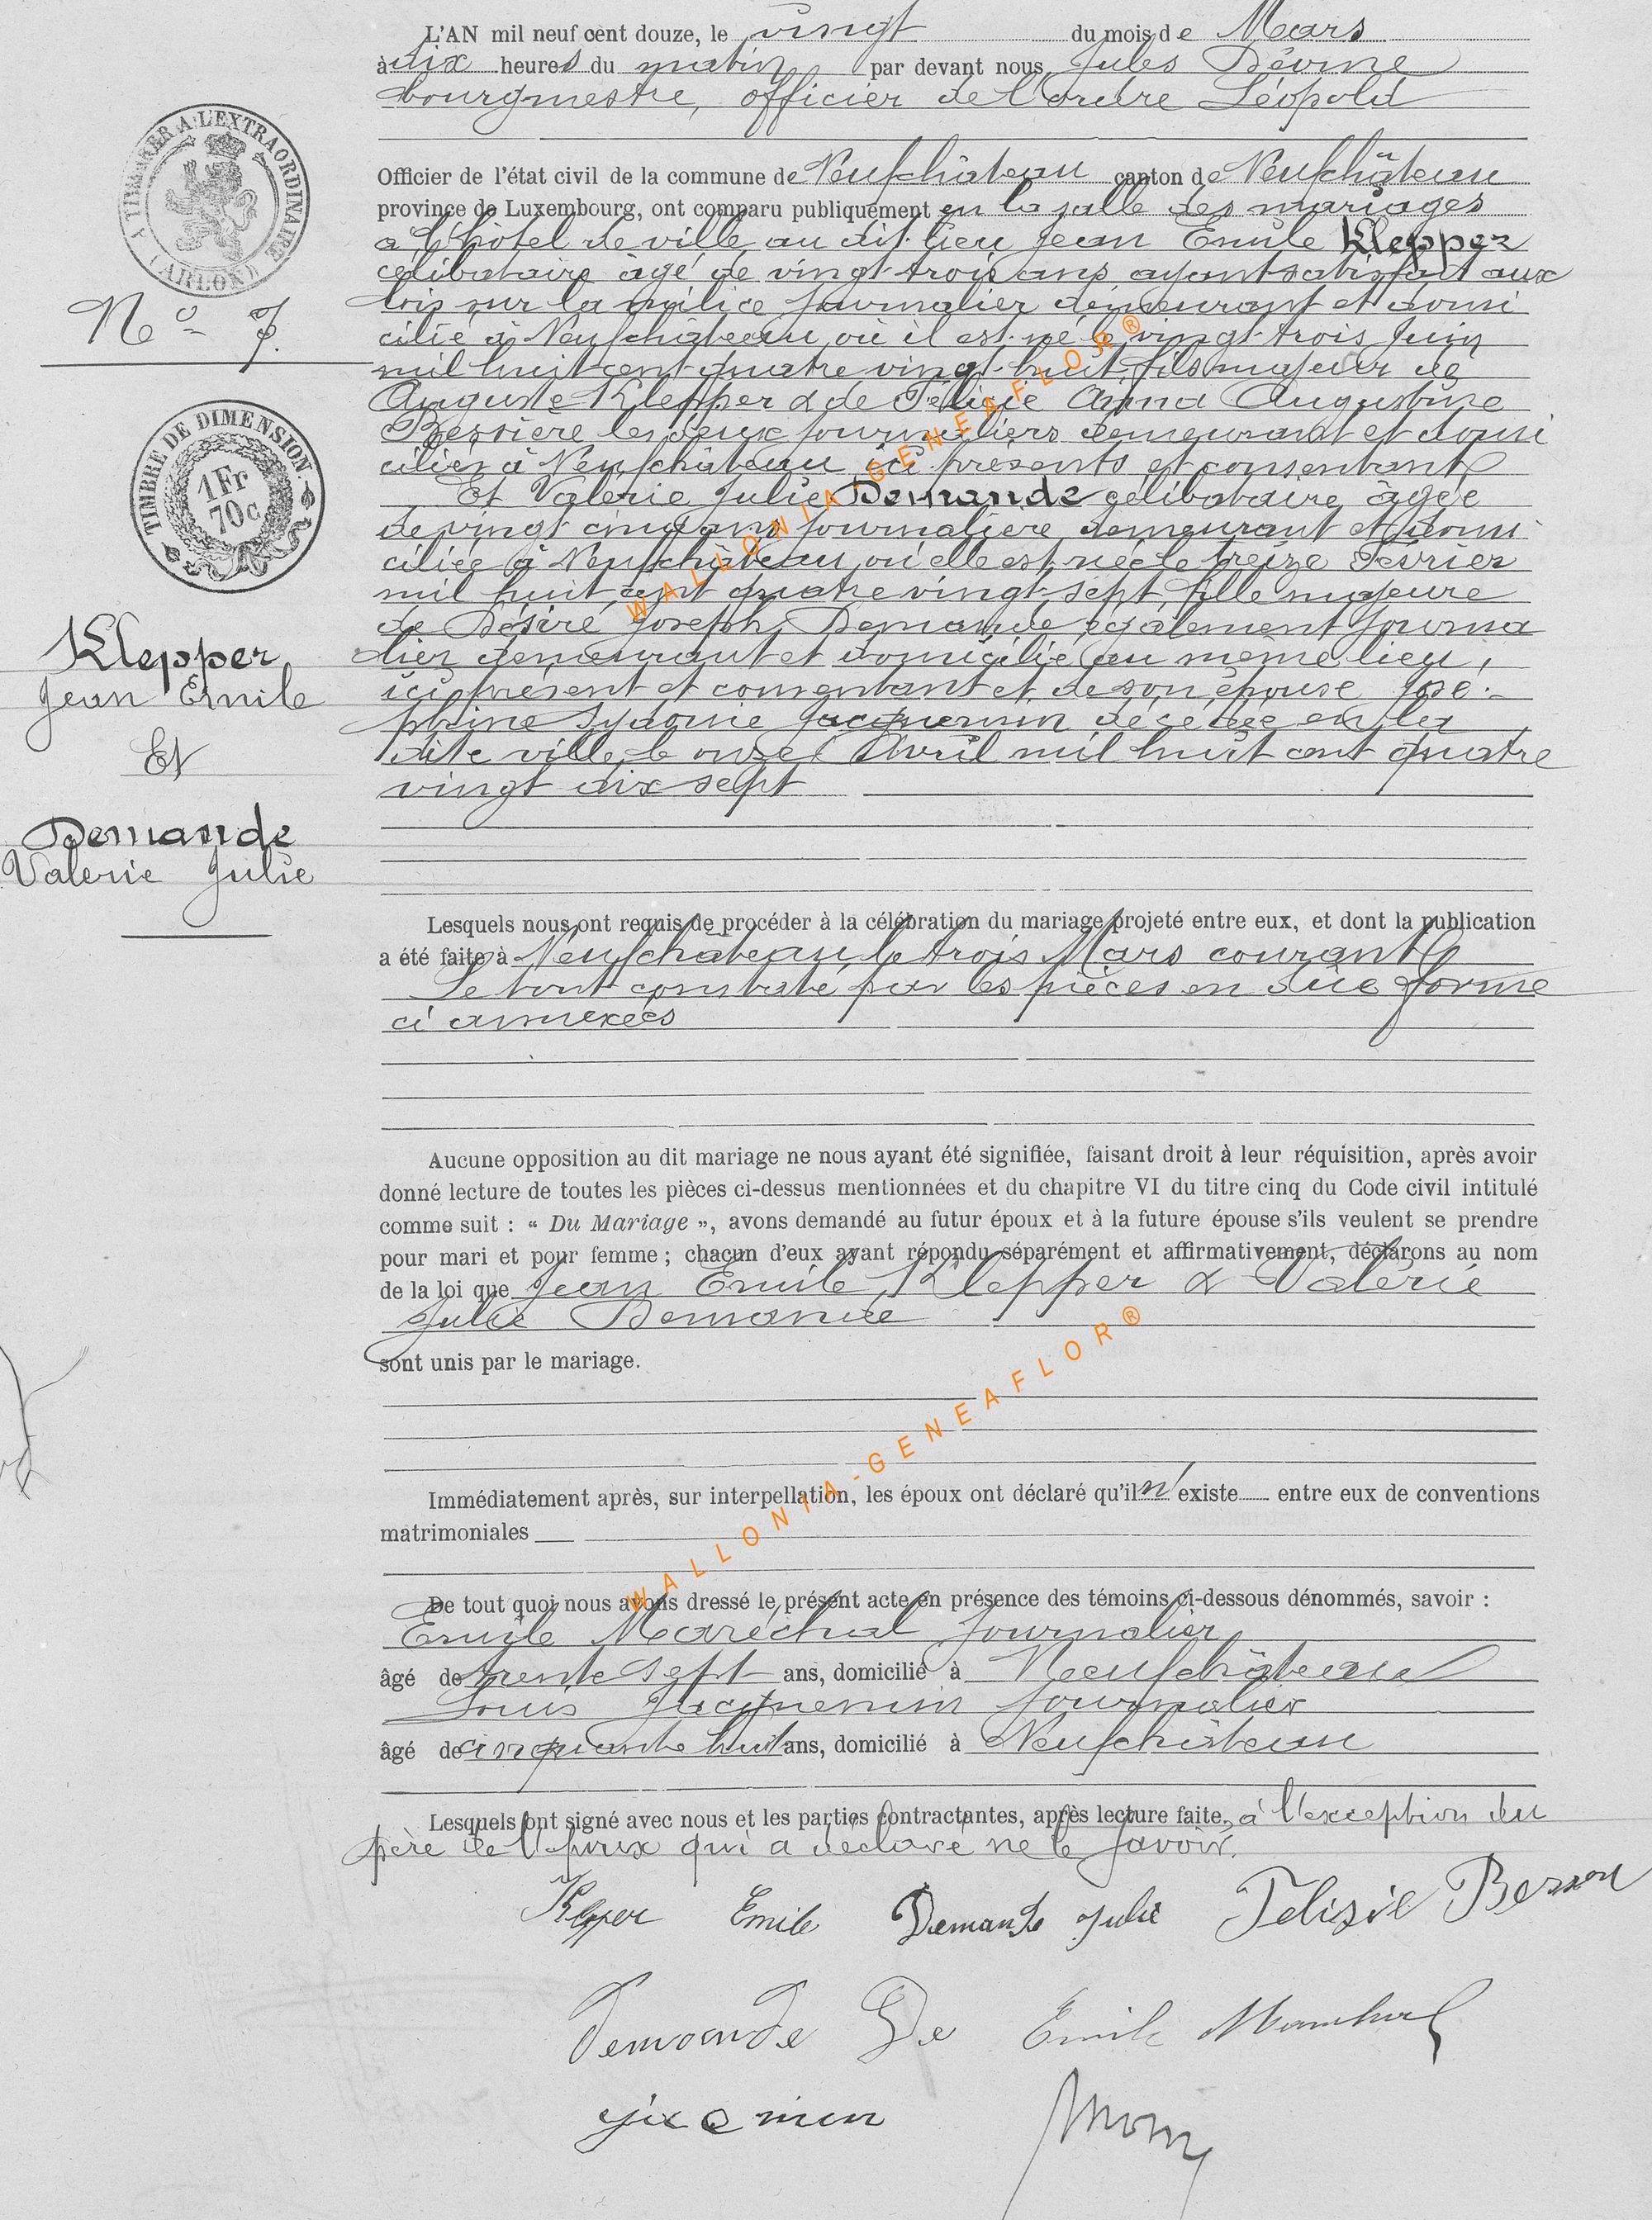 L'AN mil neuf cent douze, le vingt du mois de Mars
à dix heures du matin par devant nous, Jules
bourgmestre, officier de l'ordre Léopold
A TIMBRER A L'EXTRAORDINAIRE
(ARLON)
Officier de l'état civil de la commune de Neufchâteau canton de Neufchâteau
province de Luxembourg, ont comparu publiquement en la salle des mariages
a l'hôtel de ville au dit lieu Jean Emile Klepper
célibataire âgé de vingt-trois ans, ayant satisfait aux
lois sur la milice journalier demeurant et domi
N° 7.
cilié à Neufchâteau, où il est né le vingt-trois Juin
mil huit cent quatre vingt-huit, fils majeur de
Auguste Klepper & de Félicie Anna Augustine
Bessière les deux journaliers demeurant et domi
ciliés à Neufchâteau ici présents et consentants
Et Valérie Julie Demande célibataire, âgée
de vingt cinq ans journalière demeurant et domi
ciliée à Neufchâteau, où elle est née le treize Février
mil huit cent quatre vingt-sept, fille majeure
de Désiré Joseph Demande également journa
lier demeurant et domicilié au même lieu,
ici présent et consentant et de son épouse José-
phine Sydonie Jacquemin décédée en la
dite ville, le onze Avril mil huit cent quatre
vingt dix sept
TIMBRE DE DIMENSION.
1 Fr
70c
Klepper
Jean Emile
Et
Demande
Valerie Julie
Lesquels nous ont requis de procéder à la célébration du mariage projeté entre eux, et dont la publication
a été faite à Neufchâteau, le trois Mars courant
Le tout constaté par les pièces en due forme
ci annexées
Aucune opposition au dit mariage ne nous ayant été signifiée, faisant droit à leur réquisition, après avoir
donné lecture de toutes les pièces ci-dessus mentionnées et du chapitre VI du titre cinq du Code civil intitulé
comme suit : « Du Mariage », avons demandé au futur époux et à la future épouse s'ils veulent se prendre
pour mari et pour femme ; chacun d'eux ayant répondu séparément et affirmativement, déclarons au nom
de la loi que Jean Emile Klepper & Valérie
Julie Demande
sont unis par le mariage.
Immédiatement après, sur interpellation, les époux ont déclaré qu'il n'existe entre eux de conventions
matrimoniales
De tout quoi nous avons dressé le présent acte en présence des témoins ci-dessous dénommés, savoir :
Emile Maréchal Journalier
âgé de trente sept ans, domicilié à Neufchâteau
Louis Jacquemin journalier
âgé de cinquante huit ans, domicilié à Neufchâteau
Lesquels ont signé avec nous et les parties contractantes, après lecture faite, à l'exception du
père de l'époux qui a déclaré ne le savoir.
Klepper Emile Demande Julie Felisie
Demande De Emile Marechal
WALLONIA-GENEAFLOR®
WALLONIA-GENEAFLOR®